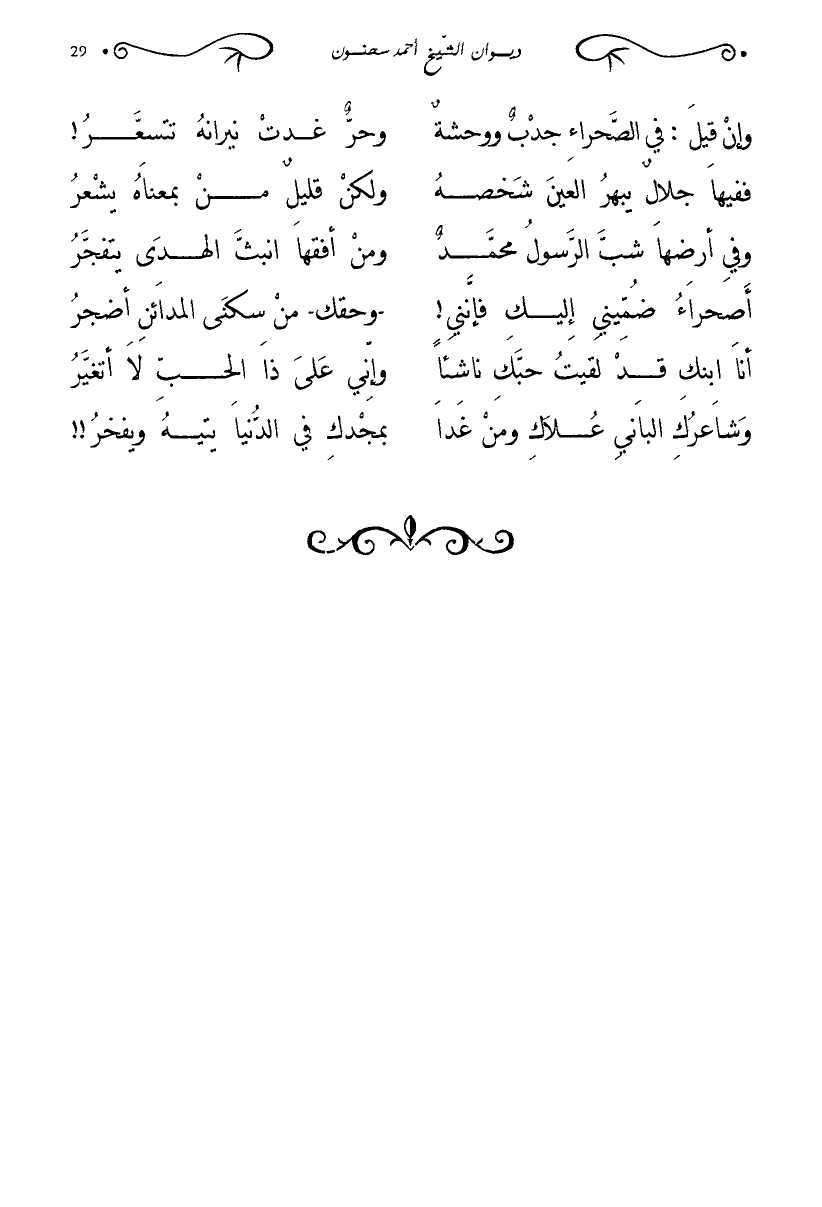 ديـوان الشّيخ أحمد سحنـون 29
وإنْ قيلَ : في الصَّحراءِ جدْبٌ ووحشةٌ وحرٌّ غـدتْ نيرانهُ تتسعَّـرُ!
ففيهاَ جلالٌ يبهرُ العينَ شَخصـهُ ولكنْ قليلٌ مـنْ بمعناهُ يشْعرُ
وفي أرضهاَ شبَّ الرَّسولُ محمَّـدٌ ومنْ أفقهاَ انبثَّ الهـدَى يتفجَّرُ
أَصحراءُ ضمِّيني إليـكِ فإنَّني! -وحقك- منْ سكنَى المدائنِ أضجرُ
أناَ ابنكِ قـدْ لقيتُ حبَّكِ ناشئاً وإنِّي عَلىَ ذا الحـبِّ لاَ أتغيَّرُ
وَشاَعرُكِ الباَنيِ عُـلاَكِ ومنْ غَداَ بمجْدكِ في الدُّنياَ يتيـهُ ويفخرُ!!